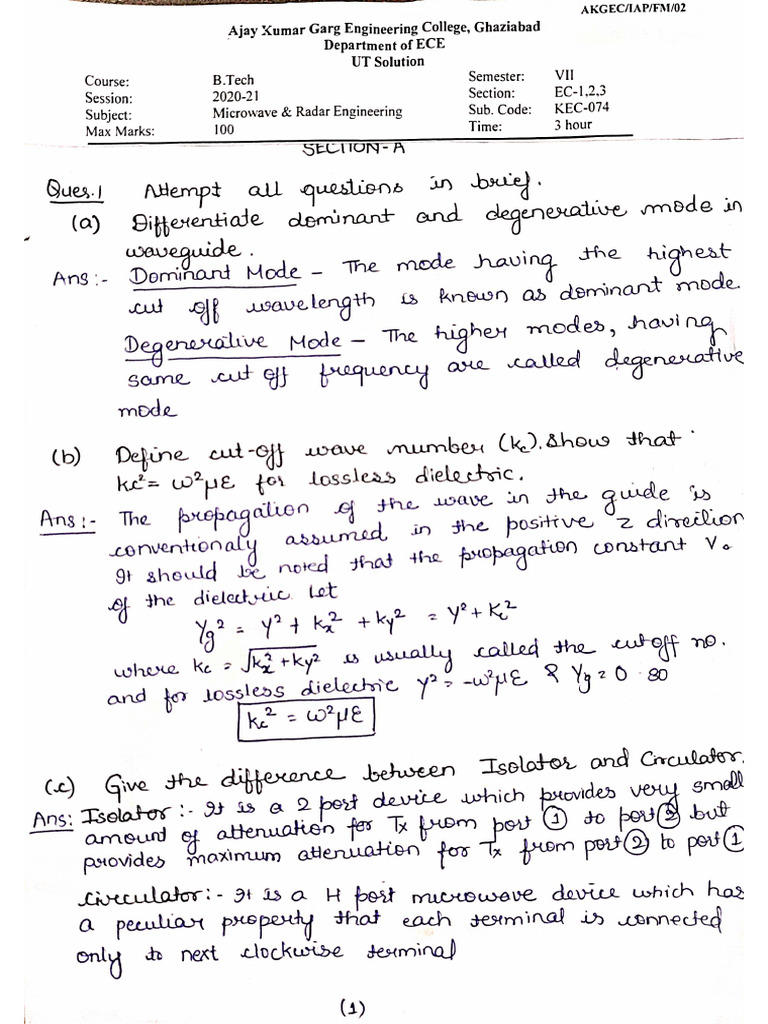 AKGEC/IAP/FM/02
Ajay Kumar Garg Engineering College, Ghaziabad
Department of ECE
UT Solution
Course: B.Tech Semester: VII
Session: 2020-21 Section: EC-1,2,3
Subject: Microwave & Radar Engineering Sub. Code: KEC-074
Max Marks: 100 Time: 3 hour
SECTION-A
Ques.1 Attempt all questions in brief.
(a) Differentiate dominant and degenerative mode in
waveguide.
Ans:- Dominant Mode - The mode having the highest
cut off wavelength is known as dominant mode.
Degenerative Mode - The higher modes, having
same cut off frequency are called degenerative
mode
(b) Define cut-off wave number (kc). Show that
kc² = ω²με for lossless dielectric.
Ans:- The propagation of the wave in the guide is
conventionaly assumed in the positive z direction
It should be noted that the propagation constant γ.
of the dielectric. Let
γg² = γ² + kx² + ky² = γ² + kc²
where kc = √kx² + ky² is usually called the cutoff no.
and for lossless dielectric γ² = -ω²με & γg = 0 so
kc² = ω²με
(c) Give the difference between Isolator and Circulator.
Ans: Isolator:- It is a 2 port device which provides very small
amount of attenuation for Tx from port ① to port ② but
provides maximum attenuation for Tx from port ② to port ①
Circulator:- It is a H port microwave device which has
a peculiar property that each terminal is connected
only to next clockwise terminal
(1)